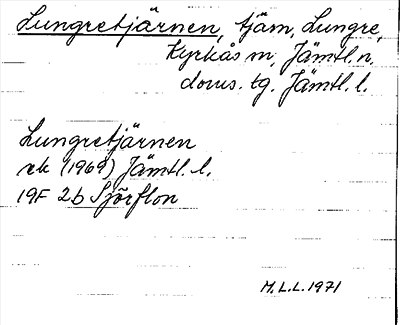 Lungretjärnen, tjärn, Lungre,
Kyrkås sn, Jämtl. n.
doms. tg. Jämtl. l.
Lungretjärnen
ek (1969) Jämtl. l.
19F 2b Sjörflon
M.L.L. 1971